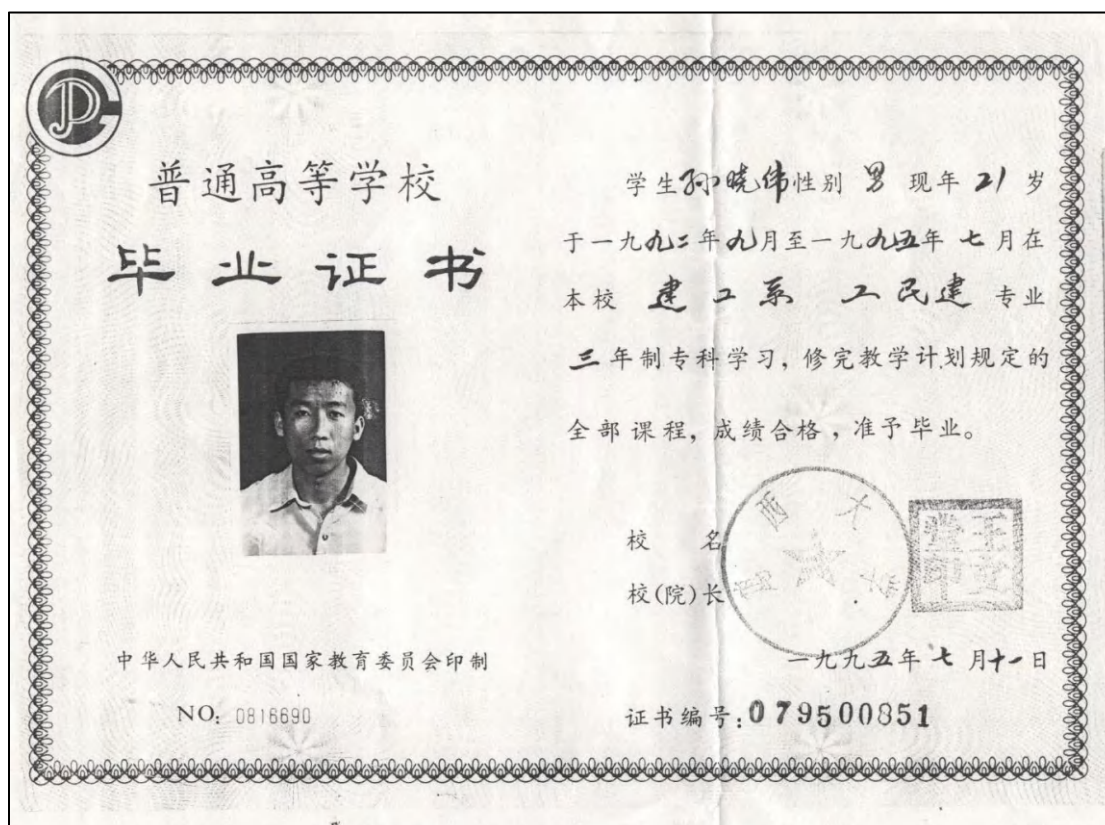 普通高等学校
毕业证书
中华人民共和国国家教育委员会印制
NO: 0816690
学生孙晓伟性别 男 现年 21 岁
于一九九二年九月至一九九五年 七 月在
本校 建工系 工民建 专业
三年制专科学习, 修完教学计划规定的
全部课程, 成绩合格, 准予毕业。
校 名
西大
校(院)长
一九九五年 七 月十一日
证书编号: 079500851